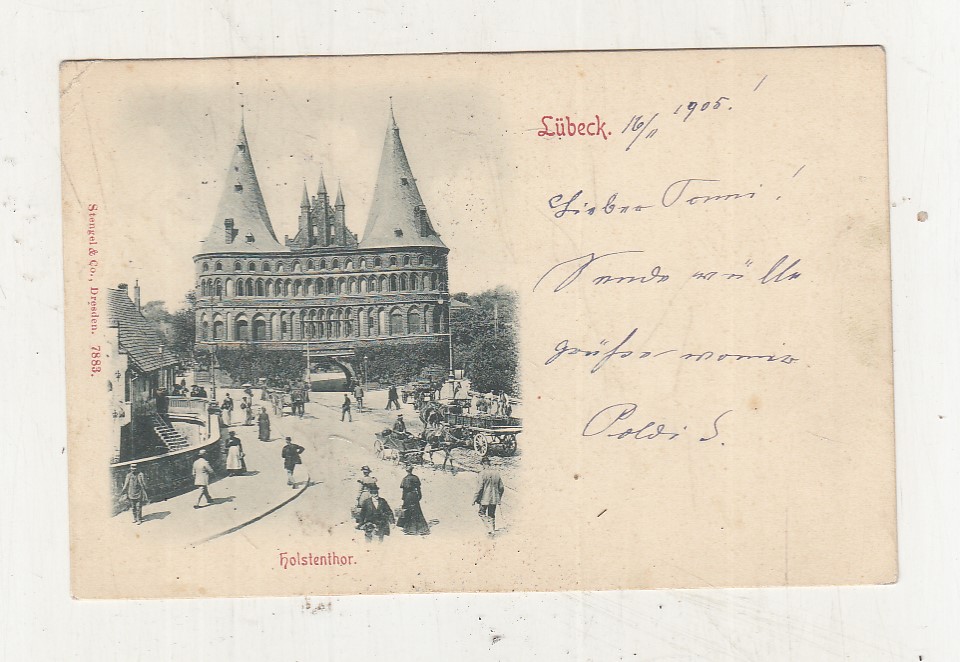 Lübeck. 16/11 1905.!
Lieber Tonni!
Sende
grüße
Poldi S.
Stengel & Co., Dresden. 7883.
Holstenthor.